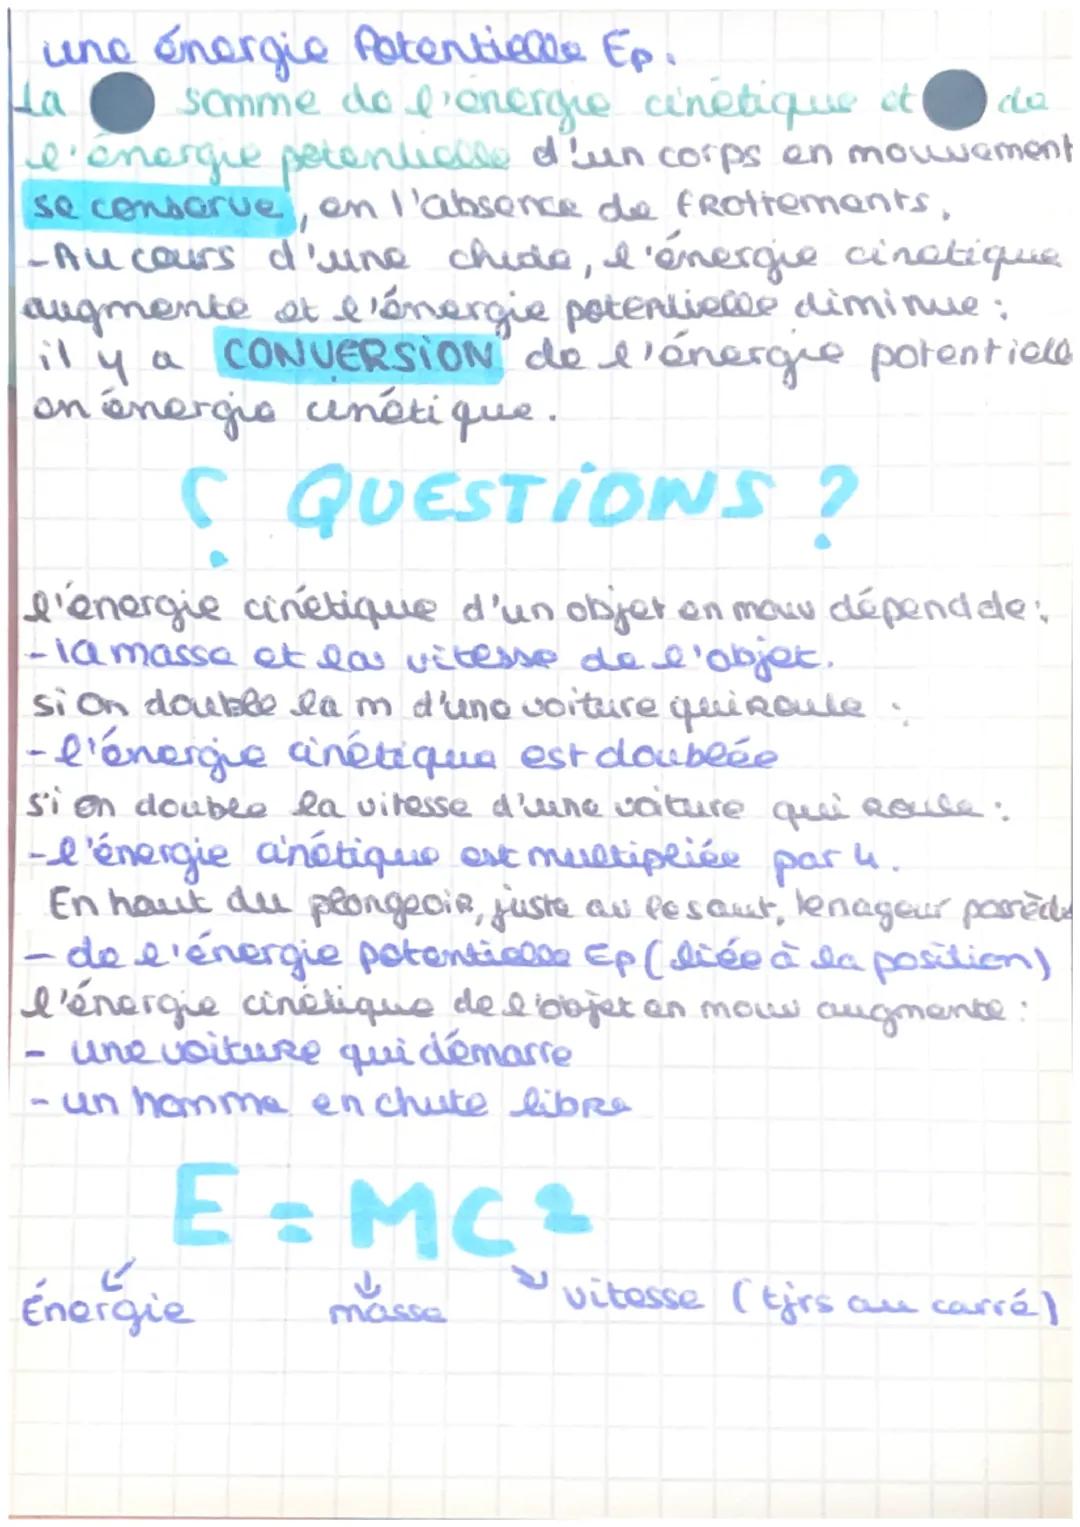 une énergie Potentielle Ep.
La somme de l'énergie cinétique et de
l'énergie potentielle d'un corps en mouvement
se conserve, en l'absence de fRottements.
-Au cours d'une chute, l'énergie cinétique
augmente et l'énergie potentielle diminue :
il y a CONVERSION de l'énergie potentielle
en énergie cinétique.
¿ QUESTIONS ?
l'énergie cinétique d'un objet en mouv dépend de :
- la masse et la vitesse de l'objet.
si on double la m d'une voiture qui Roule :
- l'énergie cinétique est doublée
si on double la vitesse d'une voiture qui Roule :
- l'énergie cinétique est multipliée par 4.
En haut du plongeoiR, juste av le saut, le nageur possède
- de l'énergie potentielle Ep (liée à la position)
l'énergie cinétique de l'objet en mouv augmente :
- une voituRe qui démarre
- un homme en chute libRe
E = MC2
Énergie masse vitesse (tjrs au carré)